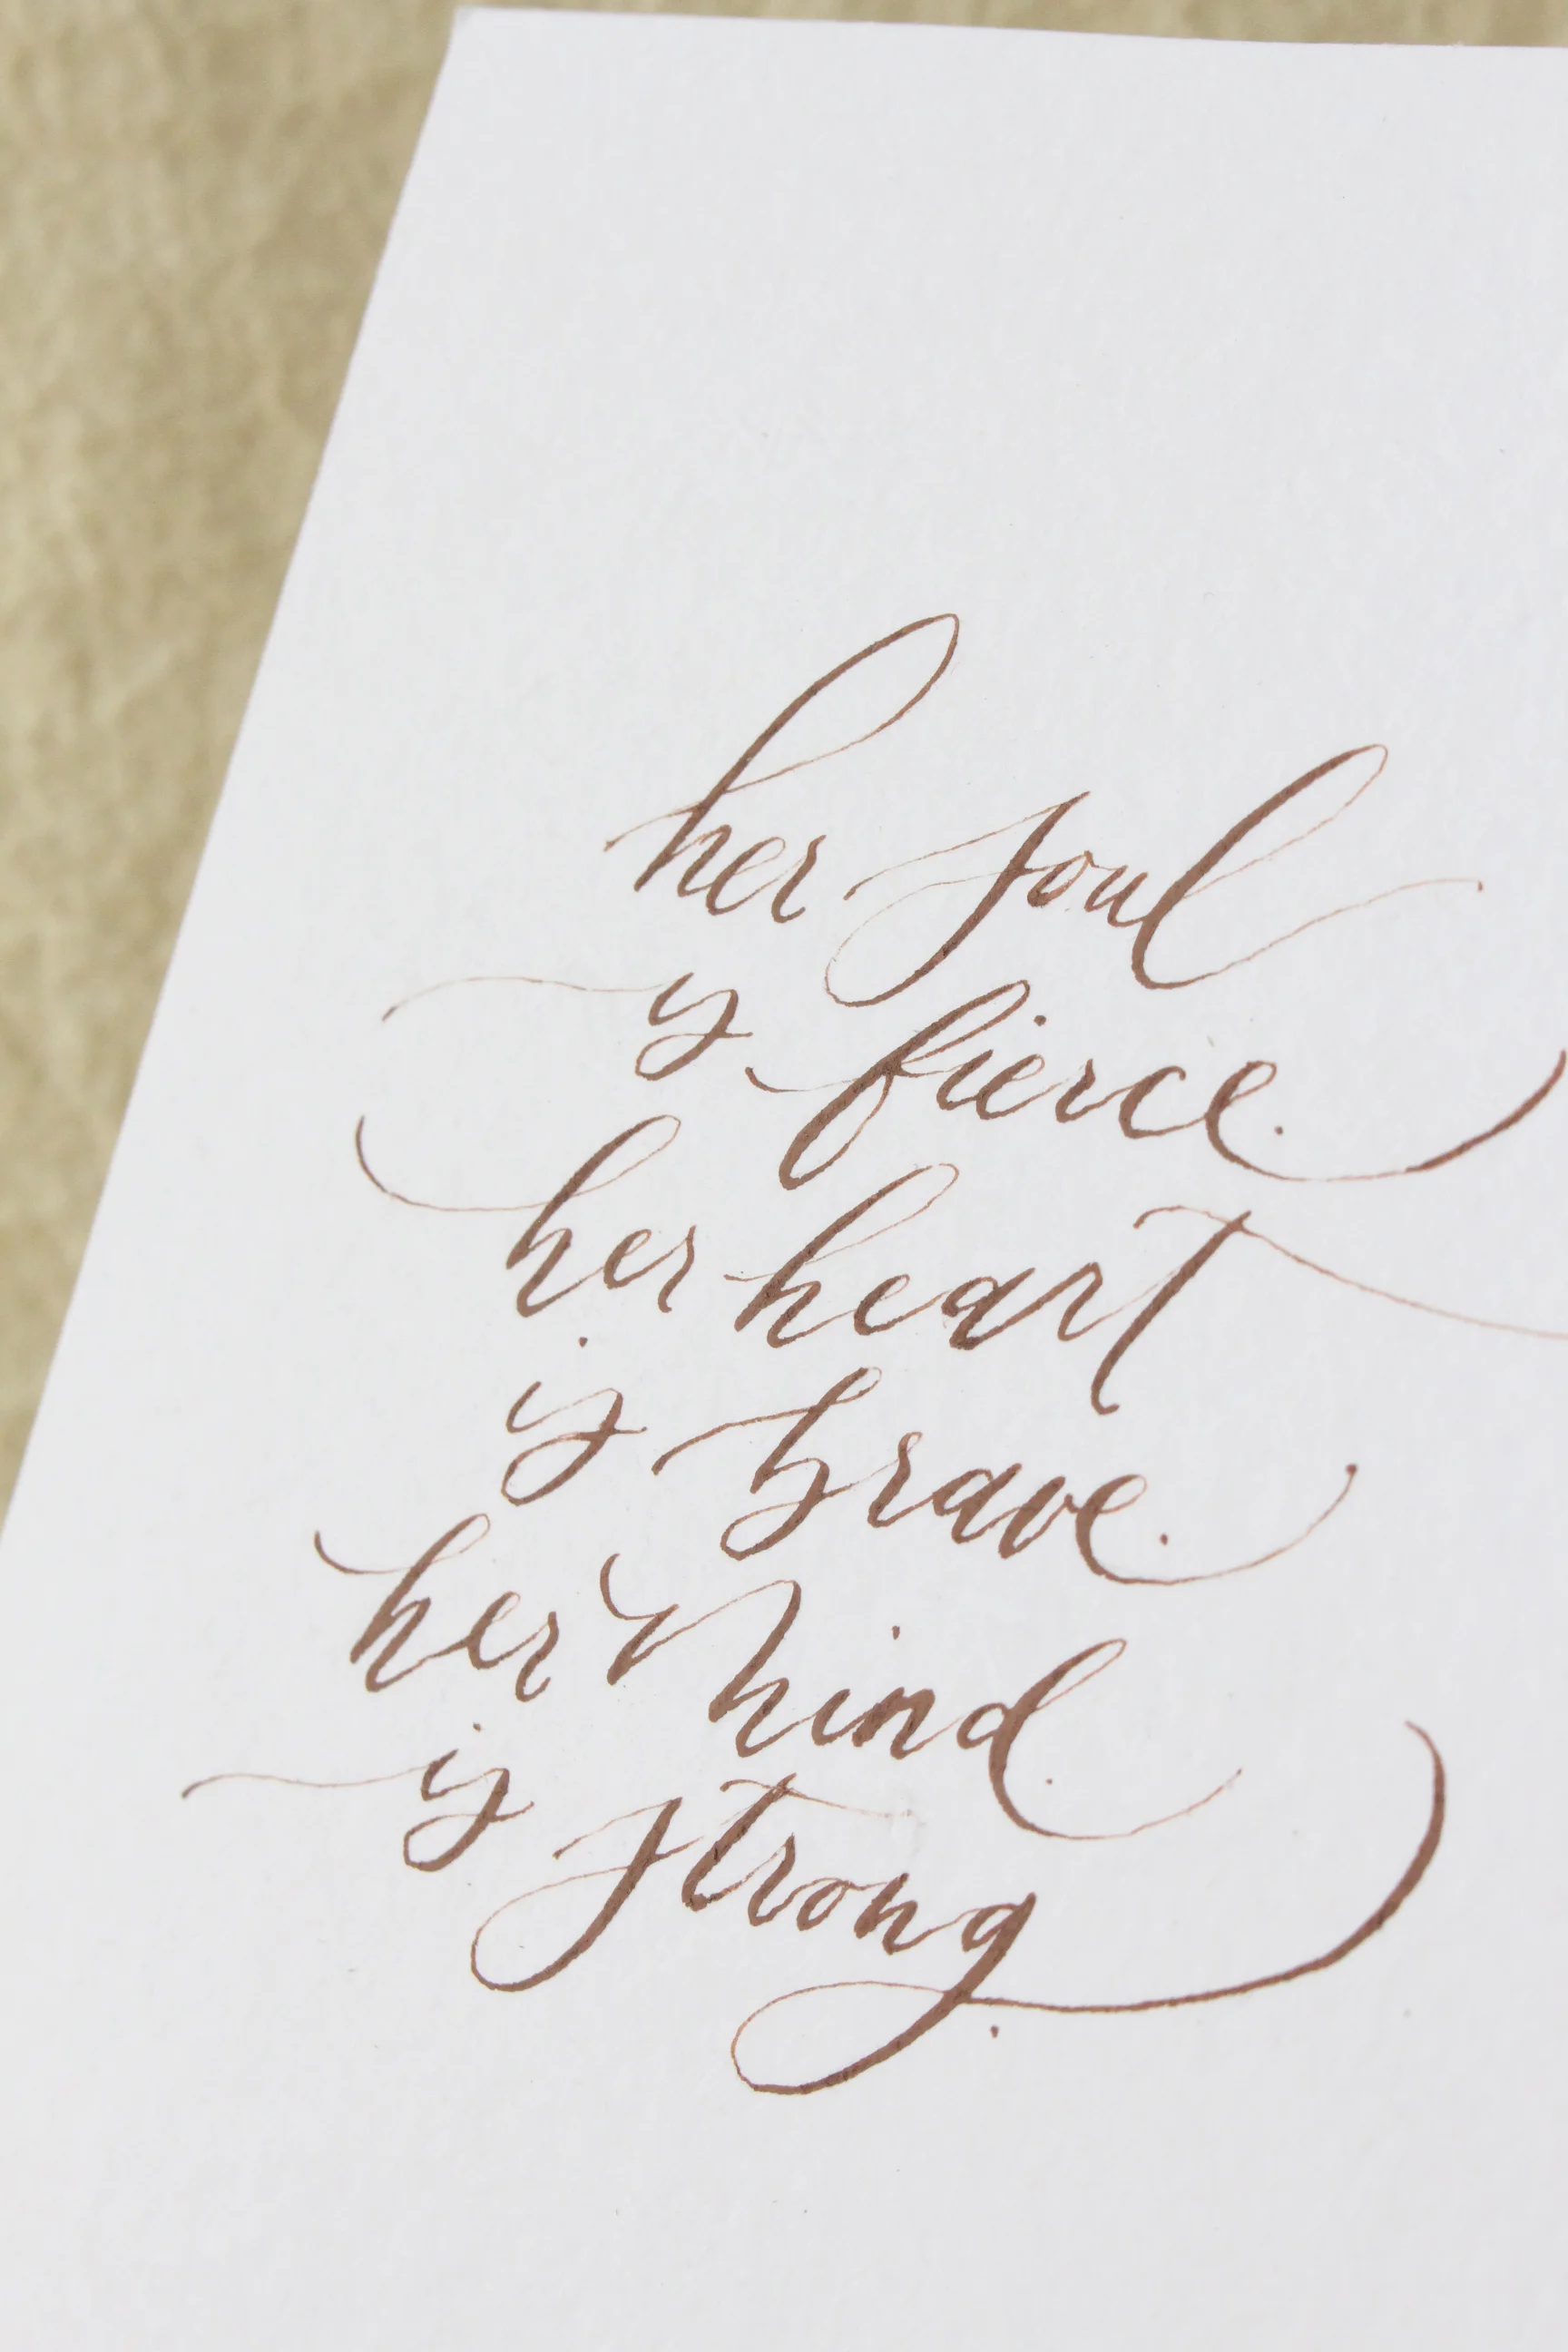 her soul
is fierce.
her heart
is brave.
her mind.
is strong.